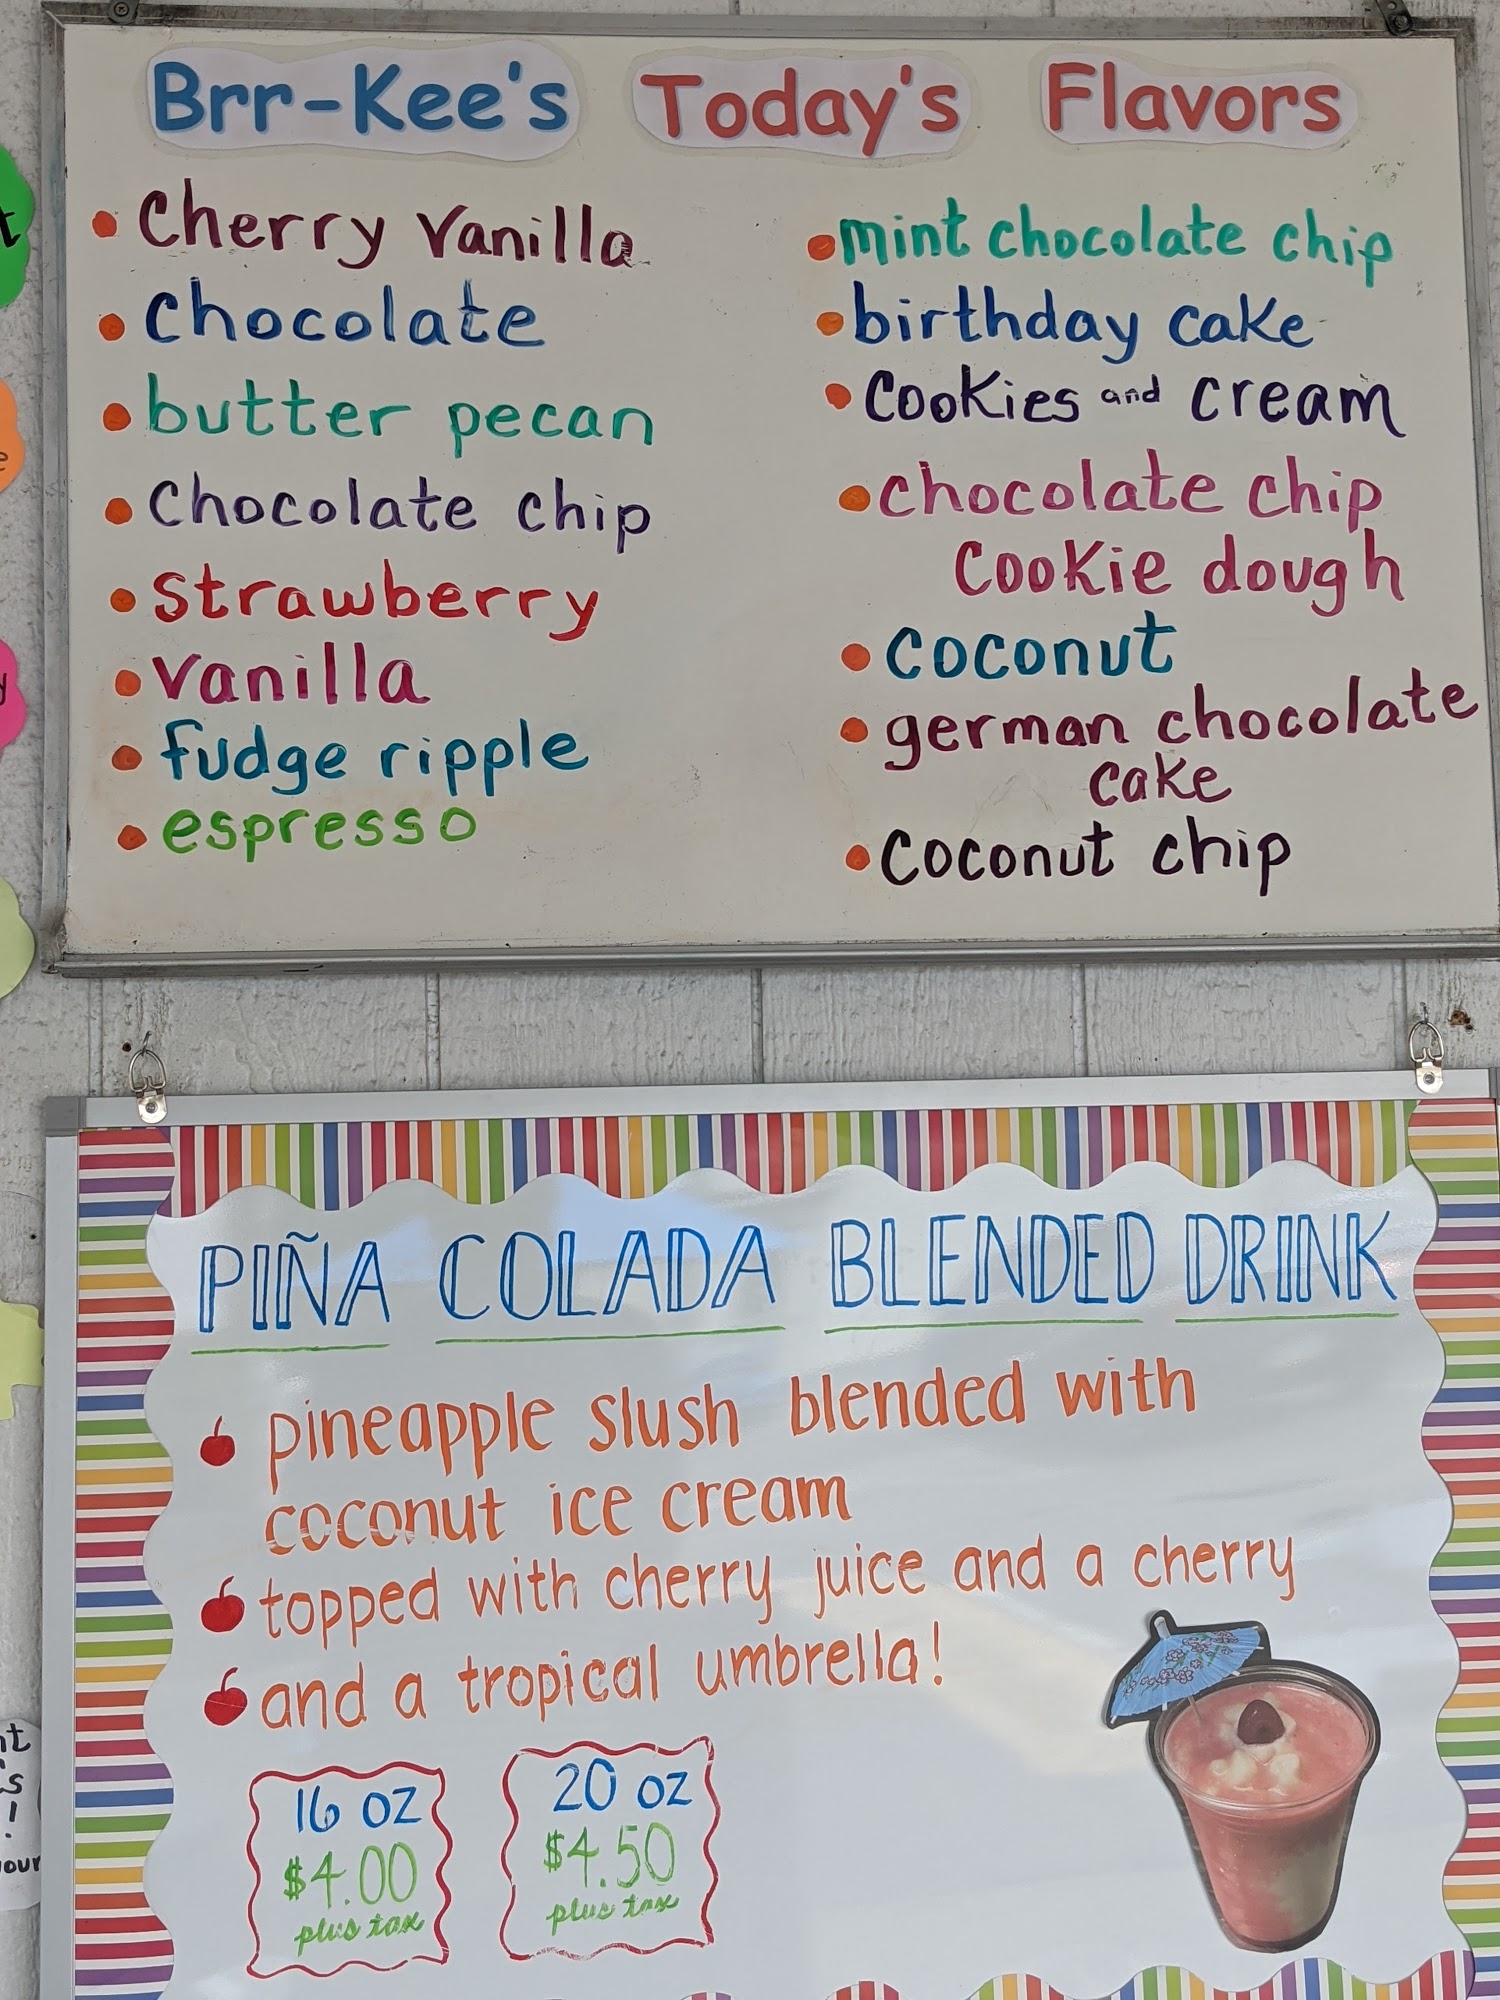 Brr-Kee's Today's Flavors
Cherry Vanilla
Chocolate
butter pecan
Chocolate chip
strawberry
vanilla
fudge ripple
espresso
mint chocolate chip
birthday cake
Cookies and cream
chocolate chip
Cookie dough
coconut
german chocolate
cake
Coconut chip
PIÑA COLADA BLENDED DRINK
pineapple slush blended with
coconut ice cream
topped with cherry juice and a cherry
and a tropical umbrella!
16 oz
$4.00
plus tax
20 oz
$4.50
plus tax